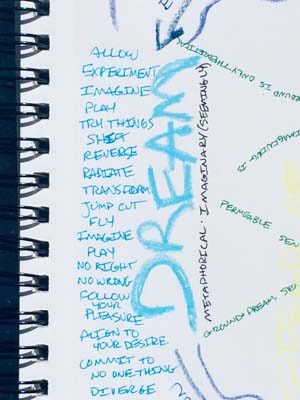 ALLOW
EXPERIMENT
IMAGINE
PLAY
TRY THINGS
SHIFT
REVERSE
RADIATE
TRANSFORM
JUMP CUT
FLY
IMAGINE
PLAY
NO RIGHT
NO WRONG
FOLLOW
YOUR
PLEASURE
ALIGN TO
YOUR DESIRE
COMMIT TO
NO ONE THING
DIVERGE
DREAM
METAPHORICAL · IMAGINARY (SEEMINGLY)
IS ONLY THE
PERMEABLE
GROUND DREAM